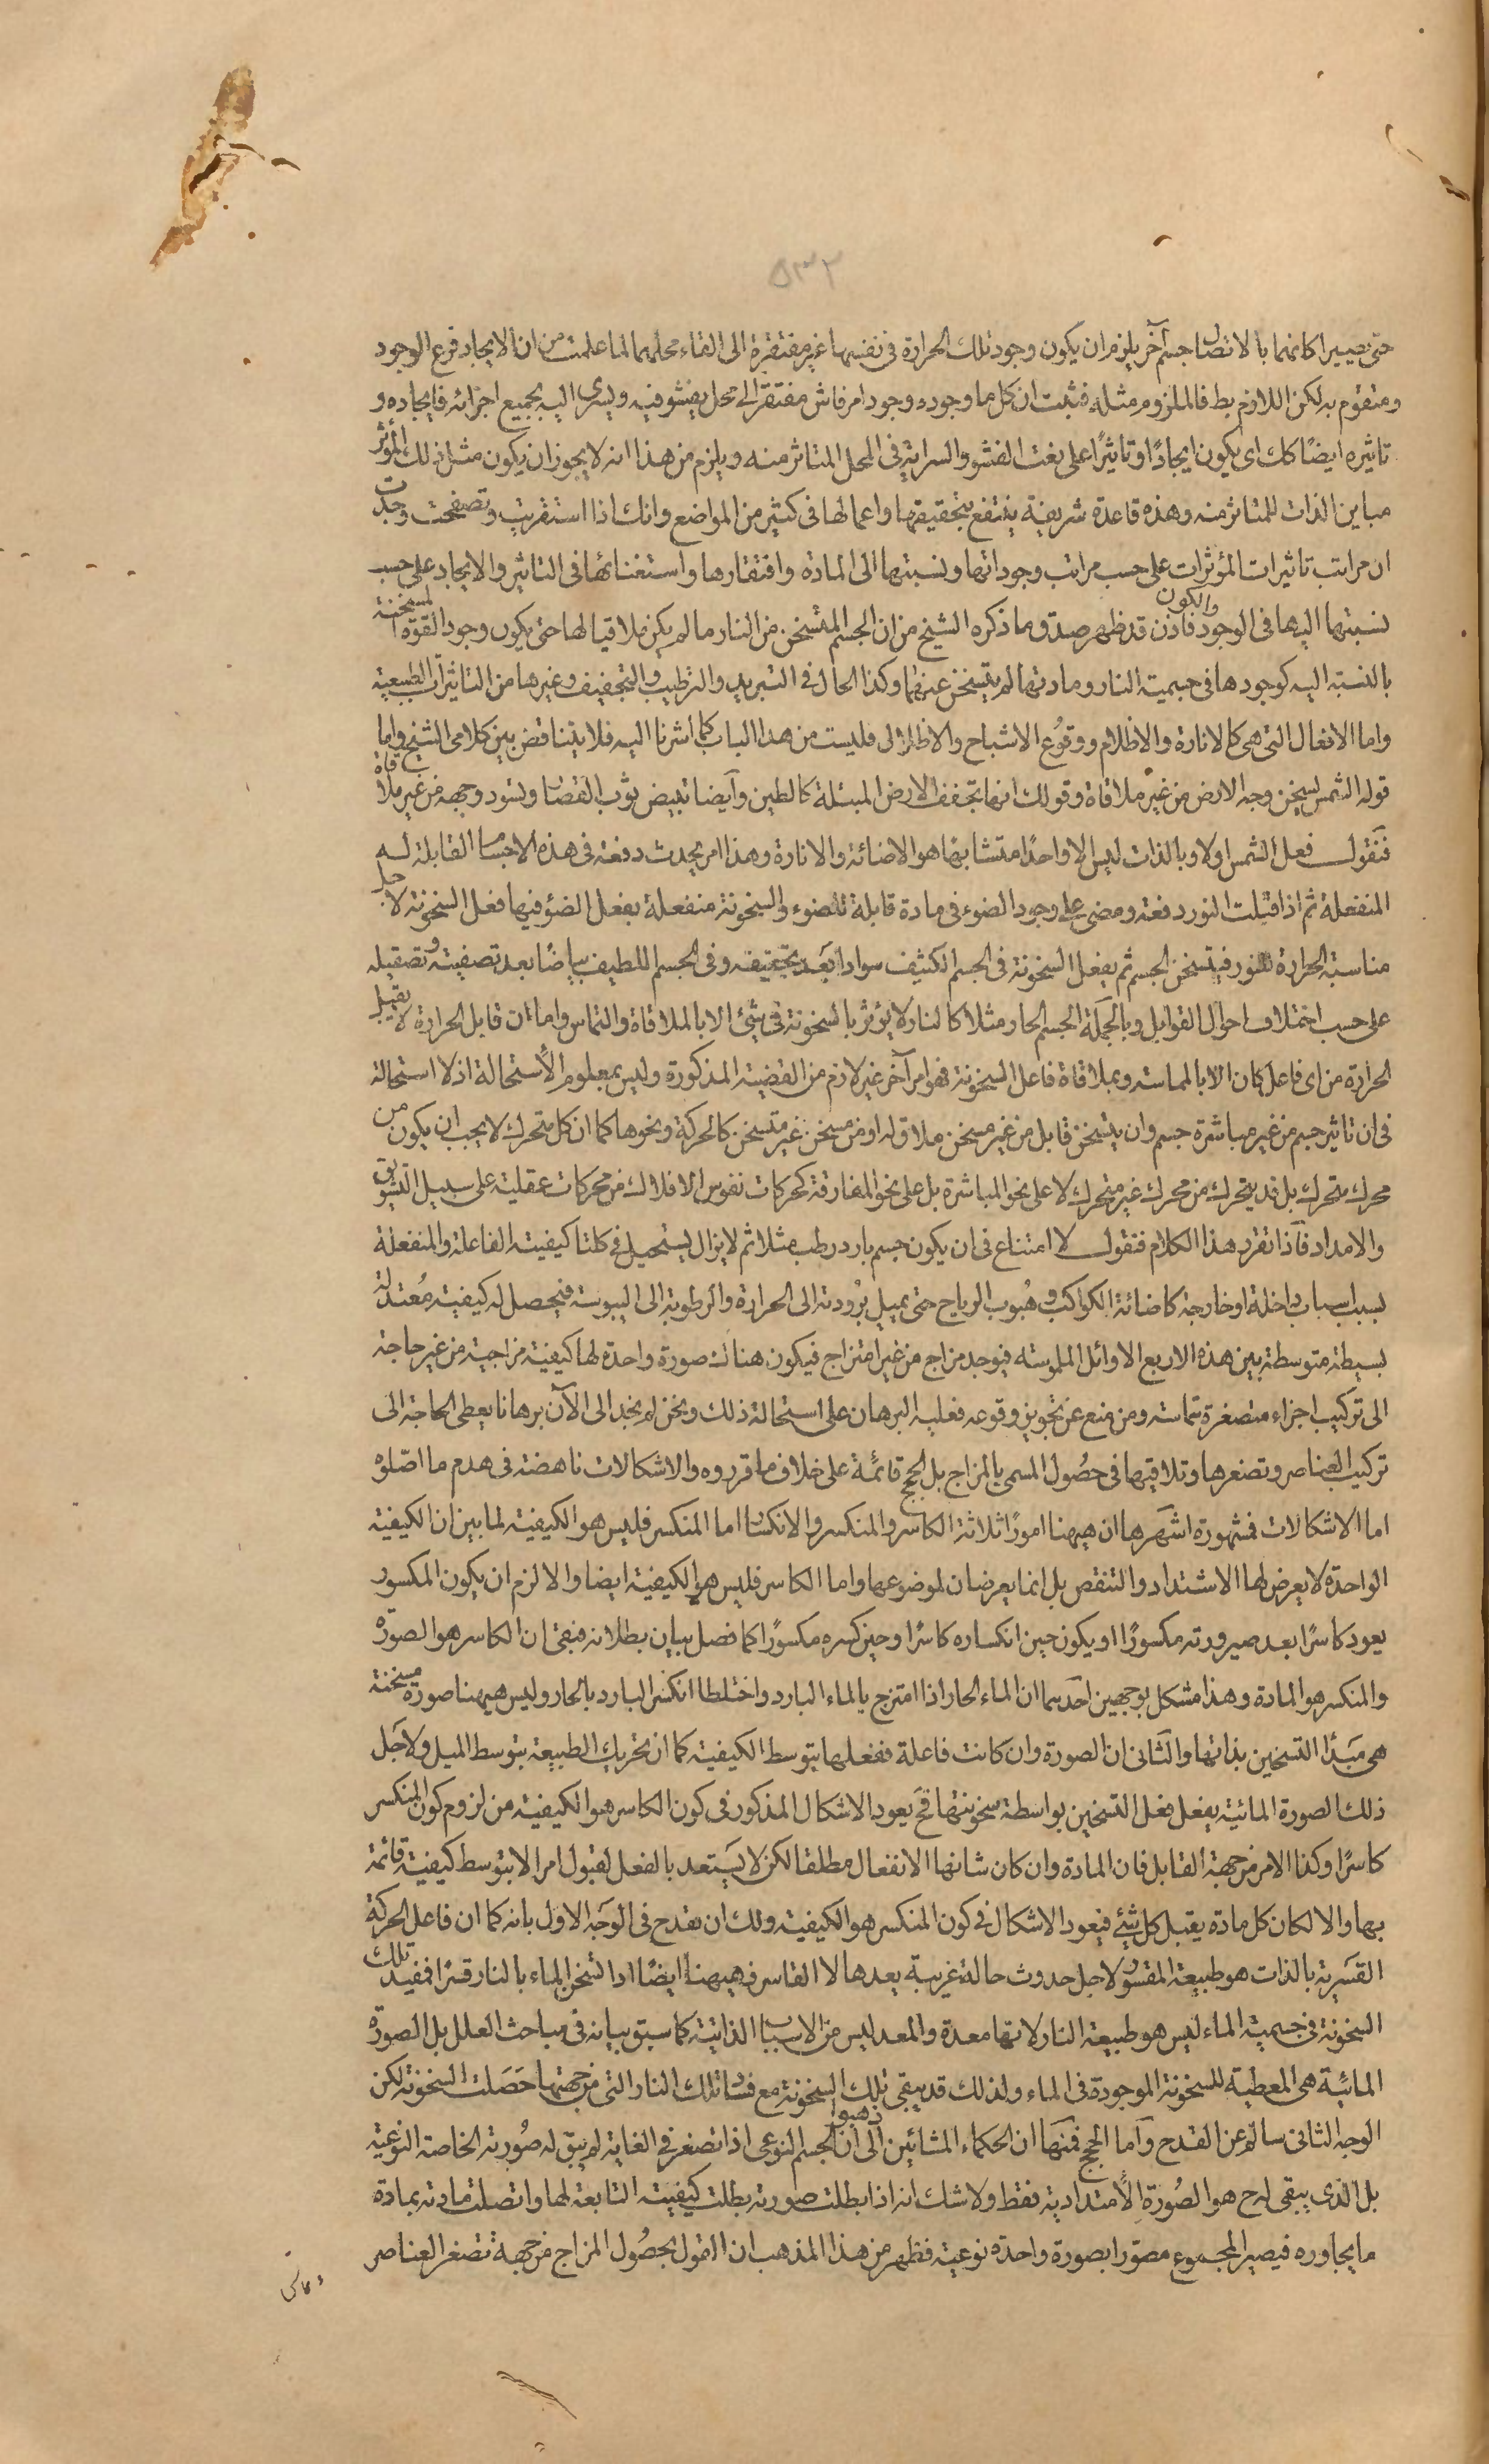 ٥٣٢
حتى يصيرا كانهما بالاتصال جسم آخر يلزم ان يكون وجود تلك الحرارة فى نفسها غير مفتقرة الى القاء محلهما لما علمت من ان الايجاد فرع الوجود
ومتقوم به لكن اللازم بط فالملزوم مثله فثبت ان كل ما وجوده وجود امر فاش مفتقر الى محل يفشو فيه ويسرى اليه بجميع اجزائه فايجاده و
تاثيره ايضًا كك اى يكون ايجادًا وتاثيرًا على نعت الفشو والسراية فى المحل المتاثر منه ويلزم من هذا انه لا يجوز ان يكون مثل ذلك المؤثر
مباين الذات للمتاثر منه وهذه قاعدة شريفة ينتفع بتحقيقها واعمالها فى كثير من المواضع وانك اذا استقريت وتصفحت وجدت
ان مراتب تاثيرات المؤثرات على حسب مراتب وجوداتها ونسبتها الى المادة وافتقارها واستغنائها فى التاثير والايجاد على حسب
نسبتها اليها فى الوجود والكون فاذن قد ظهر صدق ما ذكره الشيخ من ان الجسم المتسخن من النار ما لم يكن ملاقيا لها حتى يكون وجود القوة المسخنة
بالنسبة اليه كوجودها فى جسمية النار ومادتها لم يتسخن عنها وكذا الحال فى التبريد والترطيب والتجفيف وغيرها من التاثيرات الطبيعية
واما الافعال التى هى كالانارة والاظلام ووقوع الاشباح والاظلال فليست من هذا الباب كما اشرنا اليه فلا يتناقض بين كلامى الشيخ واما
قوله الشمس تسخن وجه الارض من غير ملاقاة وقولك انها تجفف الارض المبتلة كالطين وآيضا تبيض ثوب القصار وتسود وجهه من غير ملاقاة
فنقول فعل الشمس اولا وبالذات ليس الا واحدًا متشابها هو الاضائة والانارة وهذا امر يحدث دفعة فى هذه الاجسام القابلة له
المنفعلة ثم اذا قبلت النور دفعة ومضى على وجود الضوء فى مادة قابلة للضوء والسخونة منفعلة يفعل الضوء فيها فعل السخونة لاجل
مناسبة الحرارة للنور فيتسخن الجسم ثم يفعل السخونة فى الجسم الكثيف سوادا بعد تجفيفه وفى الجسم اللطيف بياضًا بعد تصفيته وتصقيله
على حسب اختلاف احوال القوابل وبالجملة الجسم الحار مثلا كالنار لا يؤثر بالسخونة فى شئ الا بالملاقاة والتماس واما ان قابل الحرارة لا يقبل
الحرارة من اى فاعل كان الا بالمماسة وبملاقاة فاعل السخونة فهو امر آخر غير لازم من القضية المذكورة وليس بمعلوم الاستحالة اذ لا استحالة
فى ان تاثير جسم من غير مباشرة جسم وان يتسخن قابل من غير مسخن ملاق له او من مسخن غير متسخن كالحركة ونحوها كما ان كل متحرك لا يجب ان يكون من
محرك متحرك بل قد يتحرك من محرك غير متحرك لا على نحو المباشرة بل على نحو المفارقة كحركات نفوس الافلاك من محركات عقلية على سبيل التشويق
والامداد فآذا تقرر هذا الكلام فنقول لا امتناع فى ان يكون جسم بارد رطب مثلا ثم لا يزال يستحيل فى كلتا كيفيته الفاعلة والمنفعلة
بسبب اسباب داخلة او خارجة كاضائة الكواكب وهبوب الرياح حتى يميل برودته الى الحرارة والرطوبة الى اليبوسة فيحصل له كيفية معتدلة
بسيطة متوسطة بين هذه الاربع الاوائل الملموسة فيوجد مزاج من غير امتزاج فيكون هناك صورة واحدة لها كيفية مزاجية من غير حاجة
الى تركيب اجزاء متصغرة متماسة ومن منع عن تجويز وقوعه فعليه البرهان على استحالة ذلك ونحن لم نجد الى الآن برهانا يعطى الحاجة الى
تركيب العناصر وتصغرها وتلاقيها فى حصول المسمى بالمزاج بل الحجج قائمة على خلاف ما قرروه والاشكالات ناهضة فى هدم ما اصّلوه
اما الاشكالات فمشهورة اشهرها ان هيهنا امورًا ثلاثة الكاسر والمنكسر والانكسار اما المنكسر فليس هو الكيفية لما بين ان الكيفية
الواحدة لا يعرض لها الاشتداد والتنقص بل انما يعرضان لموضوعها واما الكاسر فليس هو الكيفية ايضا والا لزم ان يكون المكسور
يعود كاسرًا بعد صيرورته مكسورًا او يكون حين انكساره كاسرًا وحين كسره مكسورًا كما فصل بيان بطلانه فبقى ان الكاسر هو الصورة
والمنكسر هو المادة وهذا مشكل بوجهين احدهما ان الماء الحار اذا امتزج بالماء البارد واختلطا انكسر البارد بالحار وليس هيهنا صورة مسخنة
هى مبدأ التسخين بذاتها والثانى ان الصورة وان كانت فاعلة ففعلها بتوسط الكيفية كما ان تحريك الطبيعة بتوسط الميل ولاجل
ذلك الصورة المائية يفعل فعل التسخين بواسطة سخونتها فح يعود الاشكال المذكور فى كون الكاسر هو الكيفية من لزوم كون المنكسر
كاسرًا وكذا الامر من جهة القابل فان المادة وان كان شانها الانفعال مطلقا لكن لا يستعد بالفعل لقبول امر الا بتوسط كيفية قائمة
بها والا لكان كل مادة يقبل كل شئ فيعود الاشكال فى كون المنكسر هو الكيفية ولك ان تقدح فى الوجه الاول بانه كما ان فاعل الحركة
القسرية بالذات هو طبيعة المقسور لاجل حدوث حالة غريبة يعدها لا القاسر فهيهنا ايضًا اذا تسخن الماء بالنار قسرًا فمفيد تلك
السخونة فى جسمية الماء ليس هو طبيعة النار لانها معدة والمعد ليس من الاسباب الذاتية كما سبق بيانه فى مباحث العلل بل الصورة
المائية هى المعطية للسخونة الموجودة فى الماء ولذلك قد يبقى تلك السخونة مع فساد تلك النار التى من جهتها حصلت السخونة لكن
الوجه الثانى سالم عن القدح وآما الحجج فمنها ان الحكماء المشائين ذهبوا الى ان الجسم النوعى اذا تصغر فى الغاية لم يبق له صورته الخاصة النوعية
بل الذى يبقى له ح هو الصورة الامتدادية فقط ولا شك انه اذا بطلت صورته بطلت كيفيته التابعة لها واتصلت مادته بمادة
ما يجاوره فيصير المجموع مصوّرا بصورة واحدة نوعية فظهر من هذا المذهب ان القول بحصول المزاج من جهة تصغر العناصر